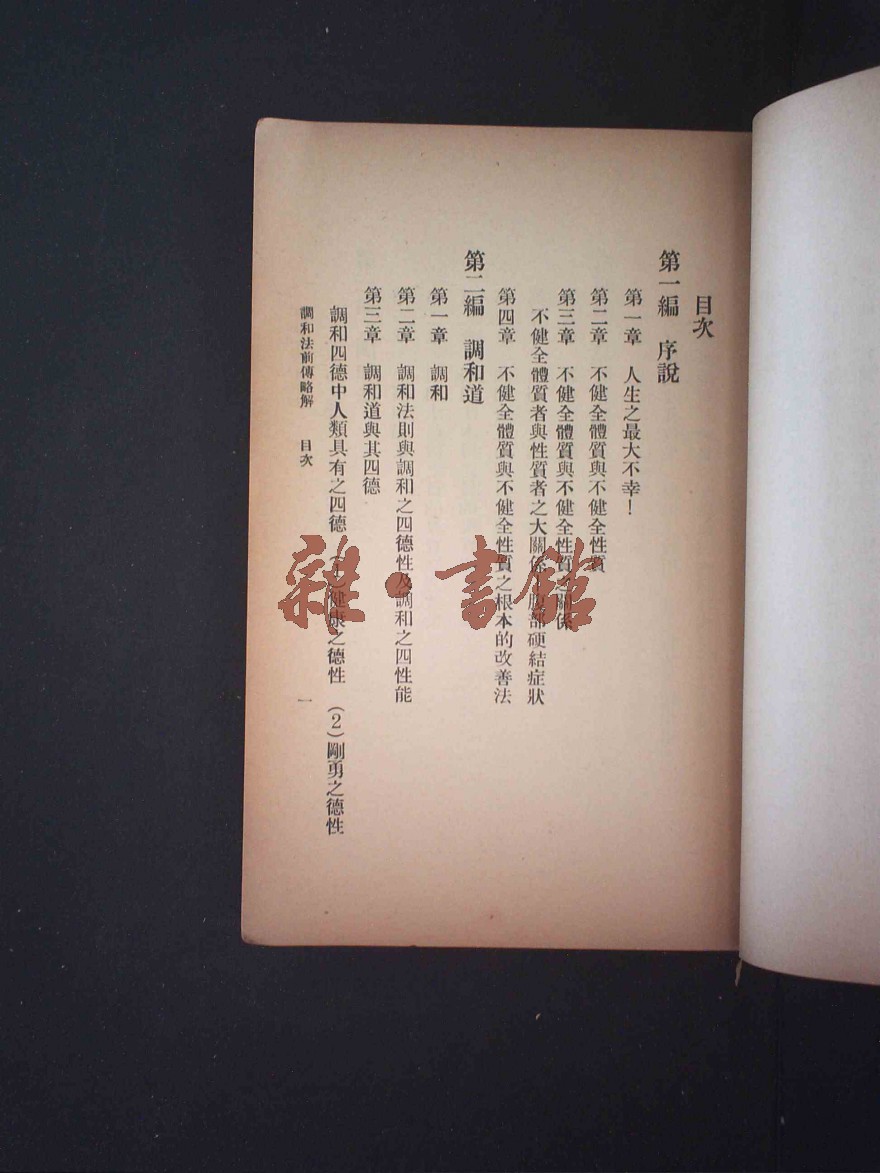 目次
第一編　序說
第一章　人生之最大不幸！
第二章　不健全體質與不健全性質
第三章　不健全體質與不健全性質之關係
不健全體質者與性質者之大關係 腹部硬結症狀
第四章　不健全體質與不健全性質之根本的改善法
第二編　調和道
第一章　調和
第二章　調和法則與調和之四德性及調和之四性能
第三章　調和道與其四德
調和四德中人類具有之四德　(1)健康之德性　(2)剛勇之德性
調和法前傳略解　目次　一
雜·書館